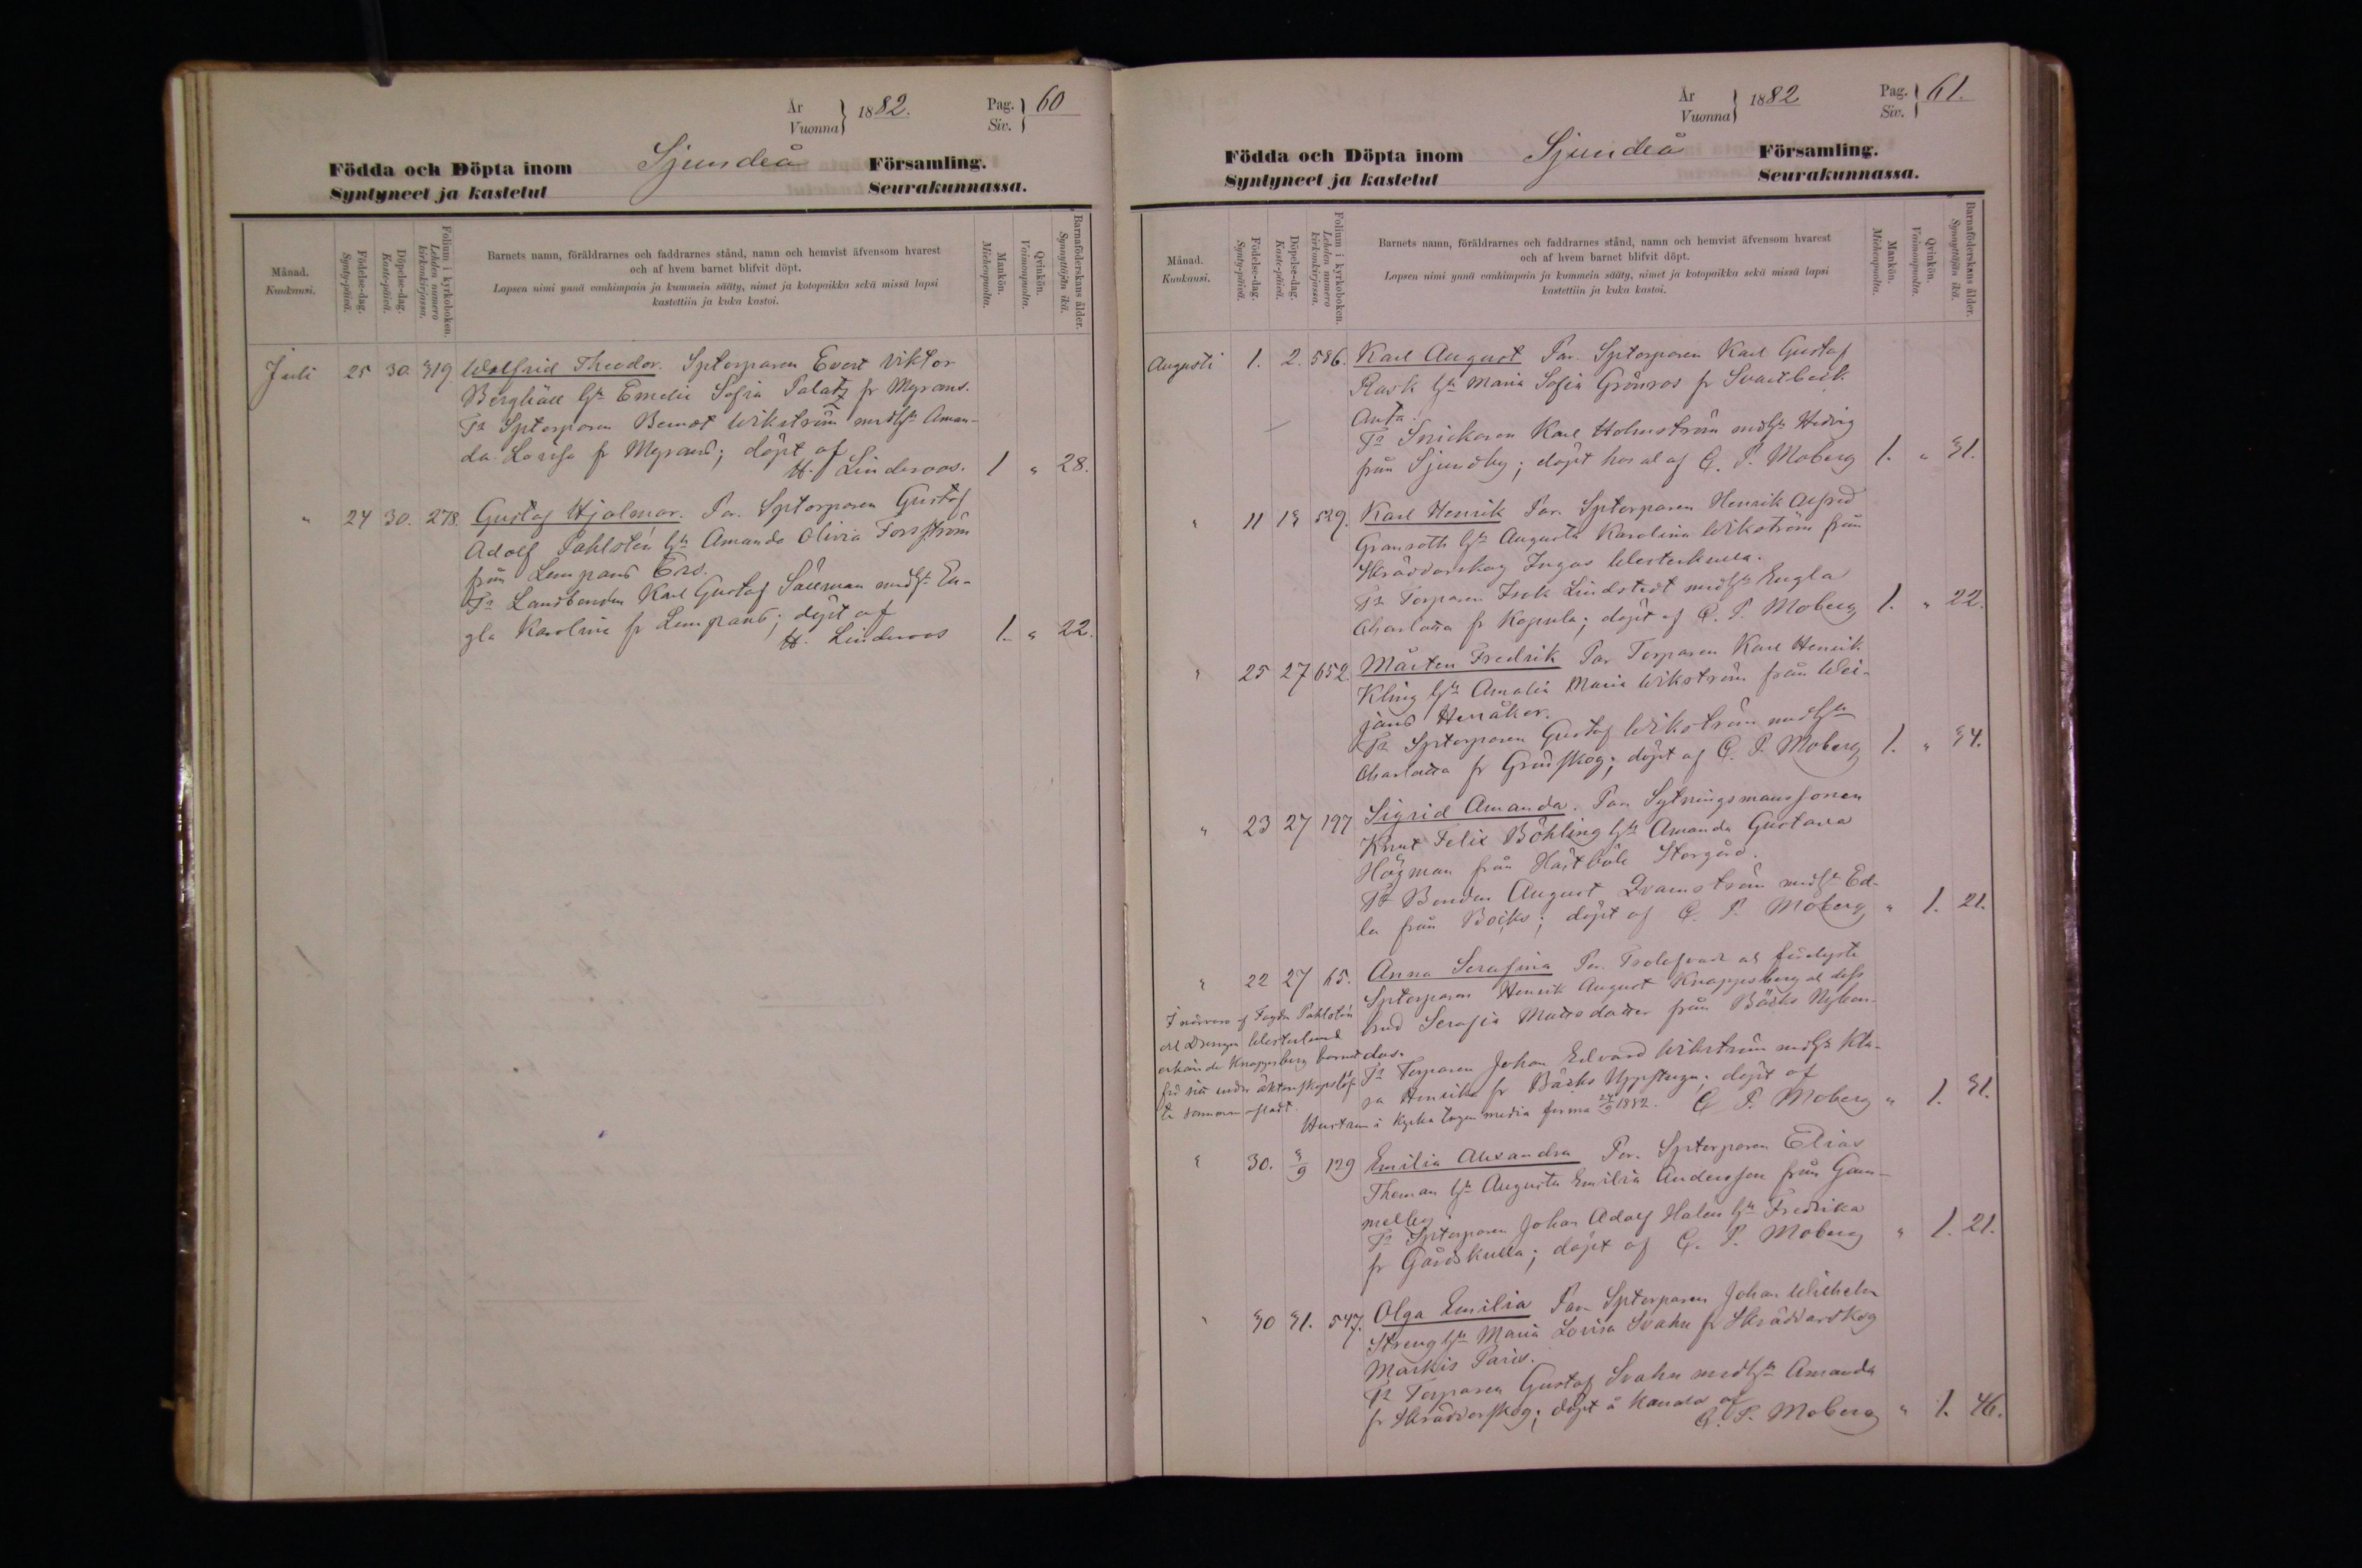 År
Vuonna
1882.
Pag.
Siv.
60
Födda och Döpta inom Sjundeå Församling.
Syntyneet ja kastetut Seurakunnassa.
Månad.
Kuukausi.
Födelse-dag.
Synty-päivä.
Döpelse-dag.
Kaste-päivä.
Folium i kyrkoboken.
Lehden numero kirkonkirjassa.
Barnets namn, föräldrarnes och faddrarnes stånd, namn och hemvist äfvensom hvarest
och af hvem barnet blifvit döpt.
Lapsen nimi ynnä vanhimpain ja kummein sääty, nimet ja kotopaikka sekä missä lapsi
kastettiin ja kuka kastoi.
Mankön.
Miehenpuolta.
Qvinkön.
Vaimonpuolta.
Barnaföderskans ålder.
Synnyttäjän ikä.
Juli 25 30. 319 Wolfrid Theodor. Sptorparen Evert Viktor
Berghäll hu Emelie Sofia Palatz fr Myrans.
Fa Sptorparen Berndt Wikström medhu Aman-
da Lovisa fr Myrans; döpt af
H. Linderoos. 1 " 28.
" 24 30. 278. Gustaf Hjalmar. Par. Sptorparen Gustaf
Adolf Pahlstén hu Amanda Olivia Forsström
från Lempans Ers.
Fa Landbonden Karl Gustaf Sällman medhu En-
gla Karolina fr Lempans; döpt af
H. Linderoos 1. " 22.
År
Vuonna
1882
Pag.
Siv.
61.
Födda och Döpta inom Sjundeå Församling.
Syntyneet ja kastetut Seurakunnassa.
Månad.
Kuukausi.
Födelse-dag.
Synty-päivä.
Döpelse-dag.
Kaste-päivä.
Folium i kyrkoboken.
Lehden numero kirkonkirjassa.
Barnets namn, föräldrarnes och faddrarnes stånd, namn och hemvist äfvensom hvarest
och af hvem barnet blifvit döpt.
Lapsen nimi ynnä vanhimpain ja kummein sääty, nimet ja kotopaikka sekä missä lapsi
kastettiin ja kuka kastoi.
Mankön.
Miehenpuolta.
Qvinkön.
Vaimonpuolta.
Barnaföderskans ålder.
Synnyttäjän ikä.
Augusti 1. 2. 586. Karl August Par. Sptorparen Karl Gustaf
Rask hu Maria Sofia Grönroos fr Svartbäck
Anta.
Fa Snickaren Karl Holmström medhu Hedvig
från Sjundby; döpt hos al af C. P. Moberg 1. " 31.
" 11 13 529. Karl Henrik Par. Sptorparen Henrik Alfred
Granroth hu Augusta Karolina Wikström från
Skräddarskog Ingas Westerkulla.
Fa Torparen Isak Lindstedt medhu Engla
Charlotta fr Kopula; döpt af C. P. Moberg 1. " 22.
" 25 27 652. Mårten Fredrik Par Torparen Karl Henrik
Kling hu Amalia Maria Wikström från Wei-
jans Herråker.
Fa Sptorparen Gustaf Wikström medhu
Charlotta fr Grindskog; döpt af C. P. Moberg 1. " 34.
" 23 27 197 Sigrid Amanda. Par Sytningsmanssonen
Knut Felix Böhling hu Amanda Gustava
Högman från Hästböle Storgård.
Fa Bonden August Qvarnström medhu Ed-
la från Böcks; döpt af C. P. Moberg " 1. 21.
" 22 27 65. Anna Serafina Par. Trolofvad
Sptorparen Henrik August Knappsberg
brud Serafia Mattsdotter från Bäcks Nyben-
das.
Fa Torparen Johan Edvard Wikström medhu Kla-
ra Henrika fr Bäcks Uppstuga; döpt af
C. P. Moberg " 1. 31.
Hustrun i kyrka tagen media forma 24/9 1882.
I närvaro af Fogden Pahlstén
och Drengen Westerlund
erkände Knappsberg barnet
" 30. 3/9 129 Emilia Alexandra Par. Sptorparen Elias
Thoman hu Augusta Emilia Andersson från Gam-
melby
Fa Sptorparen Johan Adolf Halen hu Fredrika
fr Gårdskulla; döpt af C. P. Moberg " 1. 21.
" 30 31. 547. Olga Emilia Par Sptorparen Johan Wilhelm
Streng hu Maria Lovisa Svahn fr Skräddarskog
Markis Paris.
Fa Torparen Gustaf Svahn medhu Amanda
fr Skräddarskog; döpt å Kanala af
C. P. Moberg " 1. 46.